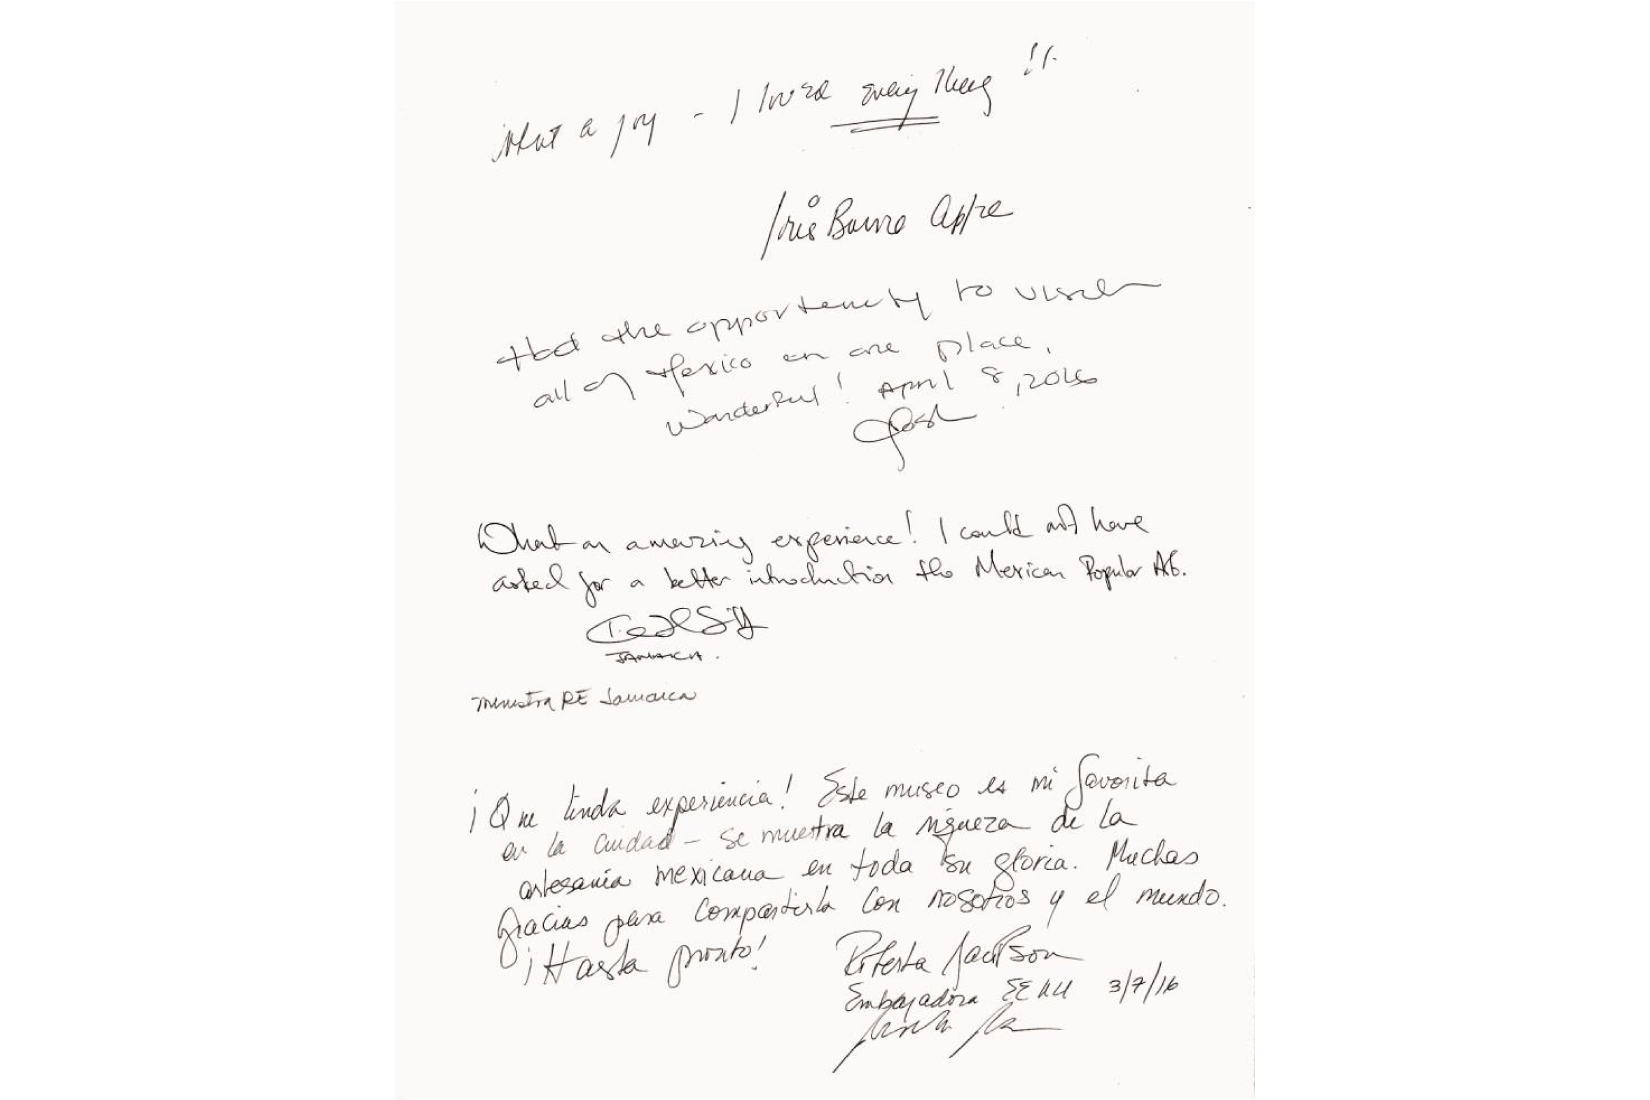 What a joy - I loved everything!!
Iris Barrel Apfel
Had the opportunity to visit
all of Mexico in one place,
Wonderful! April 8, 2016
What an amazing experience! I could not have
asked for a better introduction the Mexican Popular Art.
JAMAICA.
Ministra RE Jamaica
¡Que linda experiencia! Este museo es mi favorita
en la ciudad - se muestra la riqueza de la
artesanía mexicana en toda su gloria. Muchas
gracias para compartirla con nosotros y el mundo.
¡Hasta pronto! Roberta Jacobson
Embajadora EEUU 3/7/16